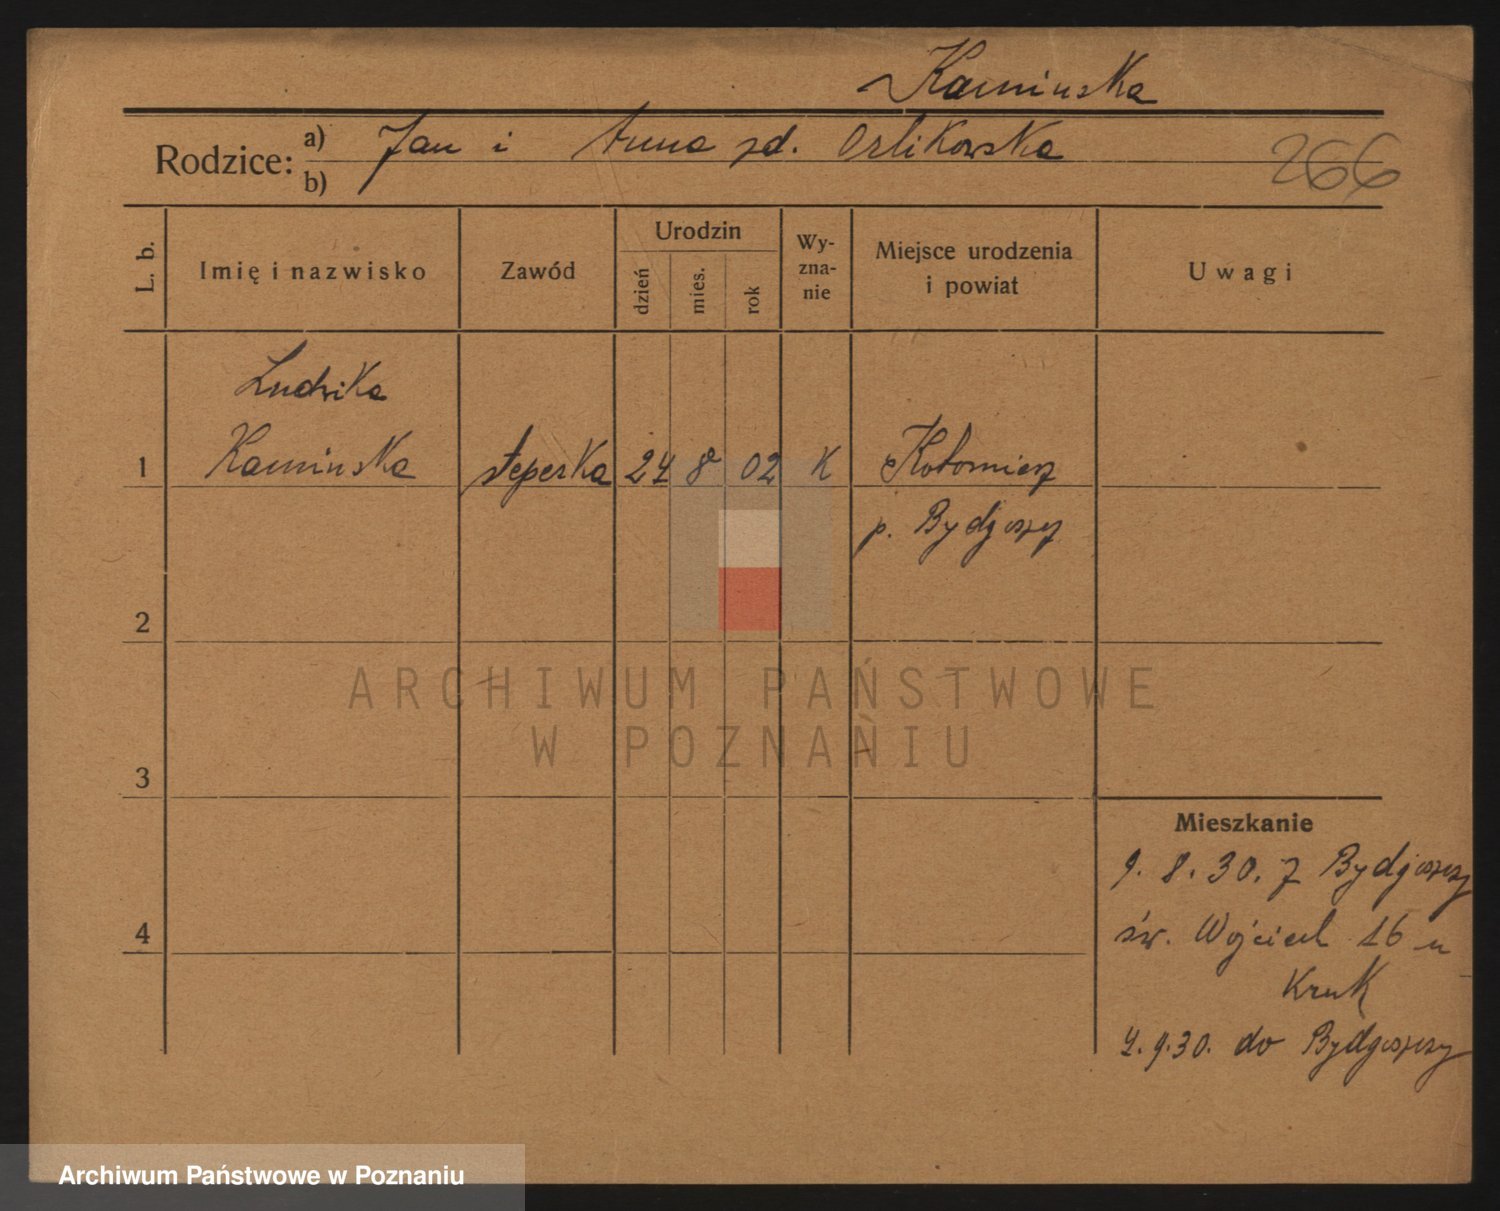 Kaminska
Rodzice: a) Jan i Anna zd. Orlikowska
b)
266
L. b.
Imię i nazwisko
Zawód
Urodzin
dzień
mies.
rok
Wy-
zna-
nie
Miejsce urodzenia
i powiat
Uwagi
Ludwika
1 Kaminska steperka 24 8 02 K Kotomierz
p. Bydgoszcz
2
3
4
ARCHIWUM PAŃSTWOWE
W POZNANIU
Mieszkanie
9. 8. 30. z Bydgoszczy
św. Wojciech 16 u
Kruk
4. 9. 30. do Bydgoszczy
Archiwum Państwowe w Poznaniu